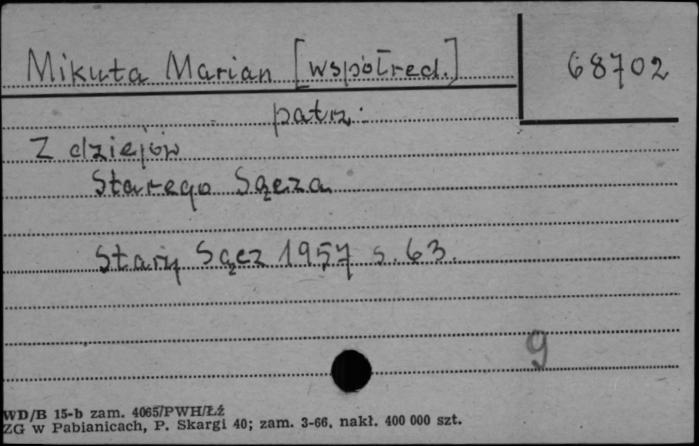 Mikuta Marian [współred.]
68702
patrz:
Z dziejów
Starego Sącza
Stary Sącz 1957 s. 63.
9
WD/B 15-b zam. 4065/PWH/Łź
ZG w Pabianicach, P. Skargi 40; zam. 3-66, nakł. 400 000 szt.